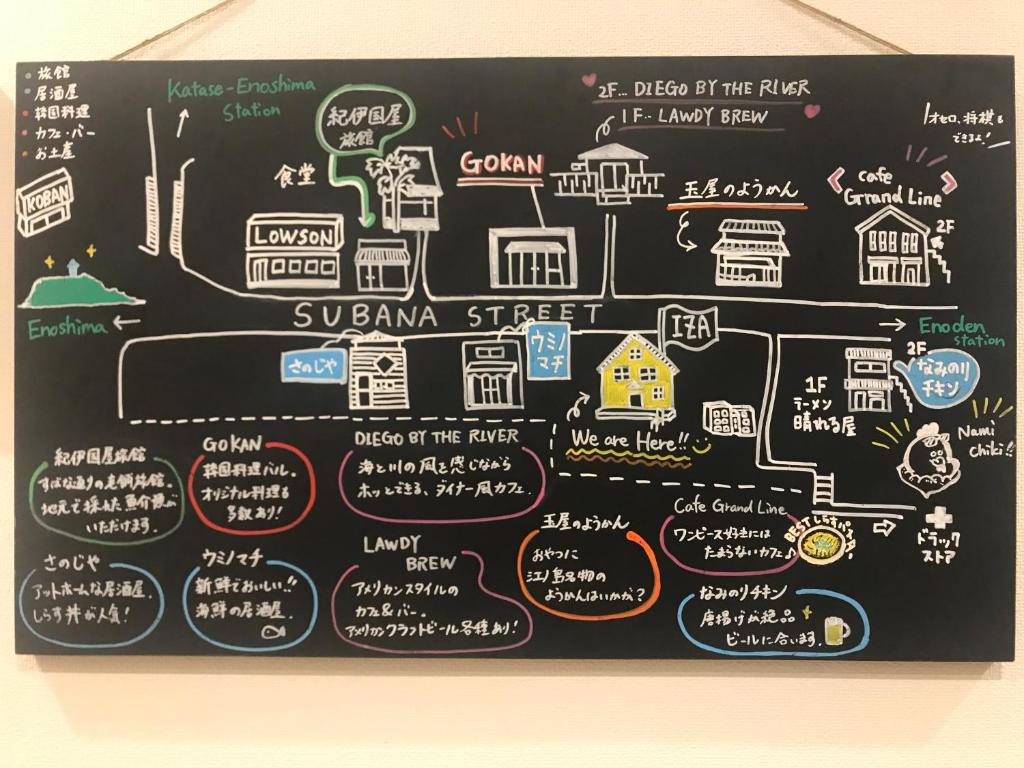 ・旅館
・居酒屋
・韓国料理
・カフェ・バー
・お土産
KOBAN
Katase-Enoshima
Station
紀伊国屋
旅館
食堂
LOWSON
GOKAN
2F... DIEGO BY THE RIVER
1F... LAWDY BREW
玉屋のようかん
オセロ、将棋も
できるよ!
cafe
Grand Line
2F
Enoshima ←
SUBANA STREET
→ Enoden
station
さのじや
ウミノ
マチ
IZA
We are Here!!
2F
なみのり
チキン
1F
ラーメン
晴れる屋
Nami
chiki!!
BESTしらすパスタ!
ドラッグ
ストア
紀伊国屋旅館
すばな通りの老舗旅館。
地元で採れた魚介類が
いただけます。
GOKAN
韓国料理バル。
オリジナル料理も
多数あり!
DIEGO BY THE RIVER
海と川の風を感じながら
ホッとできる、ダイナー風カフェ。
玉屋のようかん
おやつに
江ノ島名物の
ようかんはいかが?
Cafe Grand Line
ワンピース好きには
たまらないカフェ♪
さのじや
アットホームな居酒屋。
しらす丼が人気!
ウミノマチ
新鮮でおいしい!!
海鮮の居酒屋。
LAWDY
BREW
アメリカンスタイルの
カフェ&バー。
アメリカンクラフトビール各種あり!
なみのりチキン
唐揚げが絶品
ビールに合います。